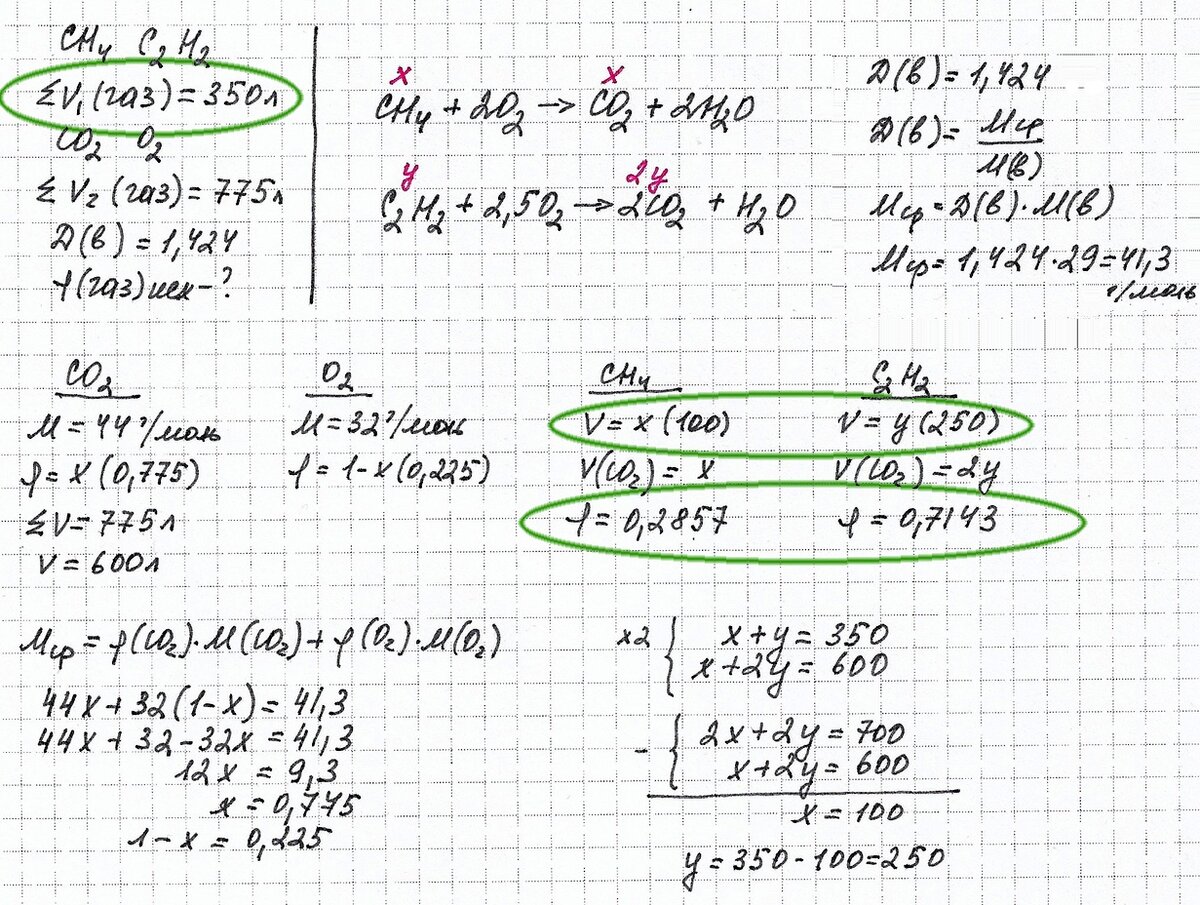 CH₄ C₂H₂
ΣV₁(газ) = 350 л
CO₂ O₂
ΣV₂ (газ) = 775 л
D(в) = 1,424
φ(газ) исх - ?
x x
CH₄ + 2O₂ → CO₂ + 2H₂O
y 2y
C₂H₂ + 2,5O₂ → 2CO₂ + H₂O
D(в) = 1,424
D(в) = Mср / M(в)
Mср = D(в) · M(в)
Mср = 1,424 · 29 = 41,3
г/моль
CO₂
M = 44 г/моль
φ = x (0,775)
ΣV = 775 л
V = 600 л
O₂
M = 32 г/моль
φ = 1 - x (0,225)
CH₄
V = x (100)
V(CO₂) = x
φ = 0,2857
C₂H₂
V = y (250)
V(CO₂) = 2y
φ = 0,7143
Mср = φ(CO₂) · M(CO₂) + φ(O₂) · M(O₂)
44x + 32(1 - x) = 41,3
44x + 32 - 32x = 41,3
12x = 9,3
x = 0,775
1 - x = 0,225
x2 { x + y = 350
x + 2y = 600
- { 2x + 2y = 700
x + 2y = 600
x = 100
y = 350 - 100 = 250